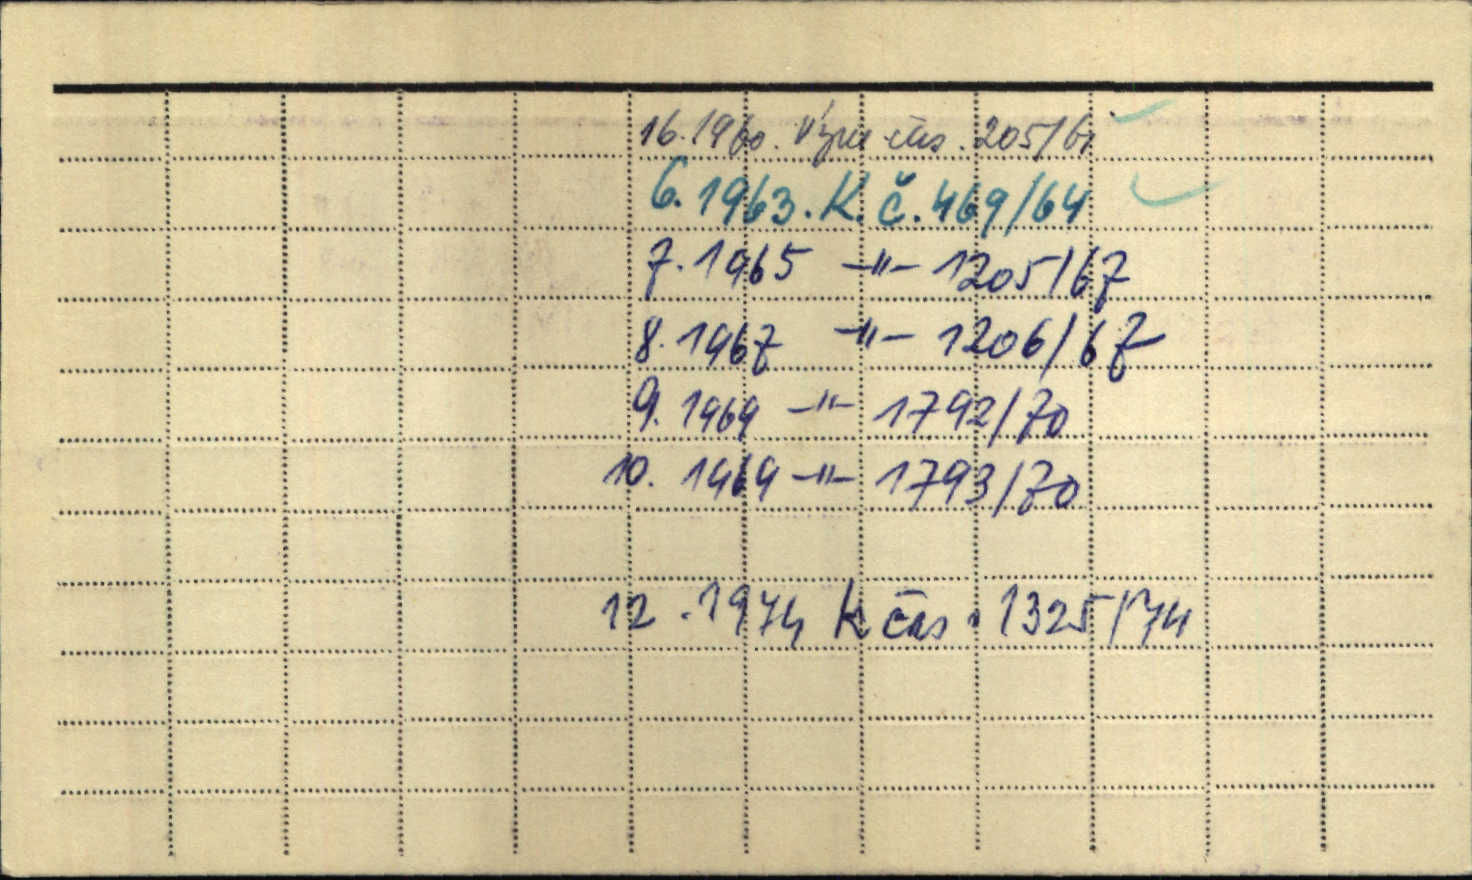 16.1960. čas. 205/61
6.1963. K. č. 469/64
7.1965 -"- 1205/67
8.1967 -"- 1206/67
9.1969 -"- 1792/70
10.1969 -"- 1793/70
12.1974 K čas. 1325/74